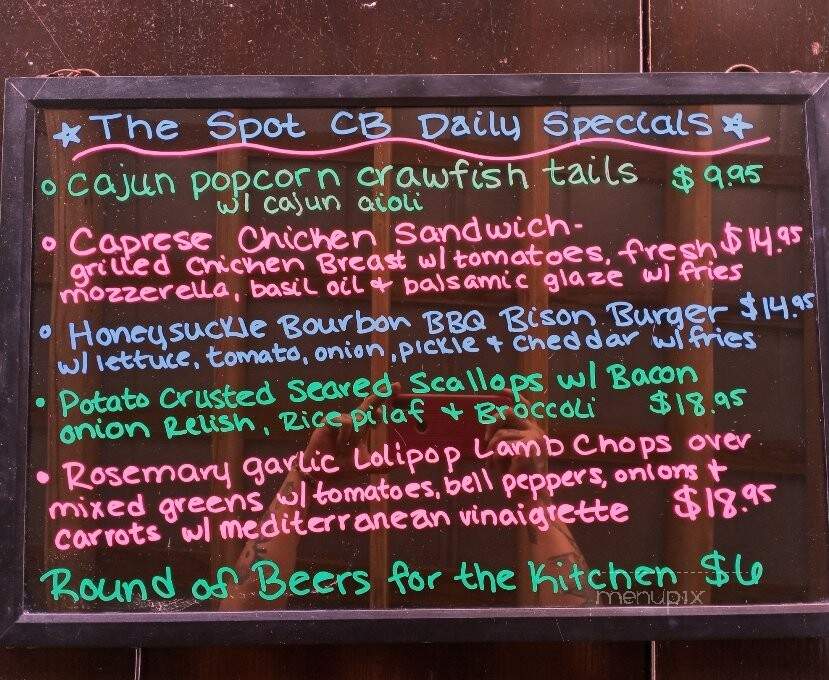 ☆ The Spot CB Daily Specials ☆
o Cajun popcorn crawfish tails $9.95
w/ cajun aioli
o Caprese Chicken Sandwich- $14.95
grilled Chicken Breast w/ tomatoes, fresh
mozzerella, basil oil + balsamic glaze w/ fries
o Honeysuckle Bourbon BBQ Bison Burger $14.95
w/ lettuce, tomato, onion, pickle + cheddar w/ fries
• Potato Crusted Seared Scallops w/ Bacon
onion Relish, Rice pilaf + Broccoli $18.95
• Rosemary garlic Lolipop Lamb Chops over
mixed greens w/ tomatoes, bell peppers, onions +
carrots w/ mediterranean vinaigrette $18.95
Round of Beers for the Kitchen $6
menupix